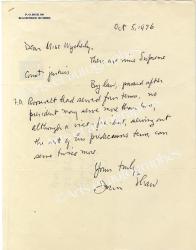 Oct 5, 1976
Dear Miss Wycherly,
There are nine Supreme
Court justices.
By law, passed after
F.D. Roosevelt had served four terms, no
president may serve more than two,
although a vice-president, serving out
the rest of his predecessors term, can
serve twice more.
Yours truly,
Irwin Shaw